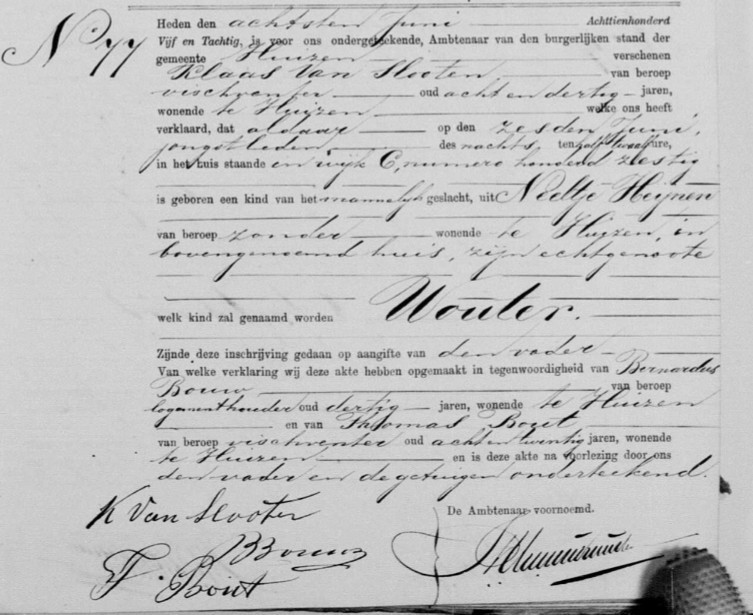 No 77
Heden den achtsten Juni Achttienhonderd
Vijf en Tachtig, is voor ons ondergeteekende, Ambtenaar van den burgerlijken stand der
gemeente Huizen verschenen
Klaas van Slooten van beroep
vischventer oud acht en dertig jaren,
wonende te Huizen welke ons heeft
verklaard, dat aldaar op den zesden Juni,
jongstleden, des nachts, ten half twaalf ure,
in het huis staande in wijk C, numero honderd zestig
is geboren een kind van het mannelijk geslacht, uit Neeltje Heijnen
van beroep zonder wonende te Huizen, in
bovengenoemd huis, zijn echtgenoote
welk kind zal genaamd worden Wouter.
Zijnde deze inschrijving gedaan op aangifte van den vader
Van welke verklaring wij deze akte hebben opgemaakt in tegenwoordigheid van Bernardus
Bouw van beroep
logementhouder oud dertig jaren, wonende te Huizen
en van Thomas Bout
van beroep vischventer oud acht en twintig jaren, wonende
te Huizen en is deze akte na voorlezing door ons
den vader en de getuigen onderteekend.
K van Slooten
De Ambtenaar voornoemd.
B Bouw
T. Bout